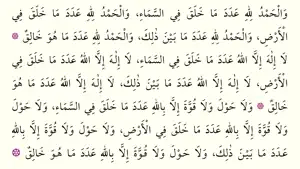 وَالْحَمْدُ لِلهِ عَدَدَ مَا خَلَقَ فِي السَّمَاءِ، وَالْحَمْدُ لِلهِ عَدَدَ مَا خَلَقَ فِي
الْأَرْضِ، وَالْحَمْدُ لِلهِ عَدَدَ مَا بَيْنَ ذَلِكَ، وَالْحَمْدُ لِلهِ عَدَدَ مَا هُوَ خَالِقٌ
لَا إِلَهَ إِلَّا اللهُ عَدَدَ مَا خَلَقَ فِي السَّمَاءِ، لَا إِلَهَ إِلَّا اللهُ عَدَدَ مَا خَلَقَ فِي
الْأَرْضِ، لَا إِلَهَ إِلَّا اللهُ عَدَدَ مَا بَيْنَ ذَلِكَ، لَا إِلَهَ إِلَّا اللهُ عَدَدَ مَا هُوَ
خَالِقٌ وَلَا حَوْلَ وَلَا قُوَّةَ إِلَّا بِاللهِ عَدَدَ مَا خَلَقَ فِي السَّمَاءِ، وَلَا حَوْلَ
وَلَا قُوَّةَ إِلَّا بِاللهِ عَدَدَ مَا خَلَقَ فِي الْأَرْضِ، وَلَا حَوْلَ وَلَا قُوَّةَ إِلَّا بِاللهِ
عَدَدَ مَا بَيْنَ ذَلِكَ، وَلَا حَوْلَ وَلَا قُوَّةَ إِلَّا بِاللهِ عَدَدَ مَا هُوَ خَالِقٌ